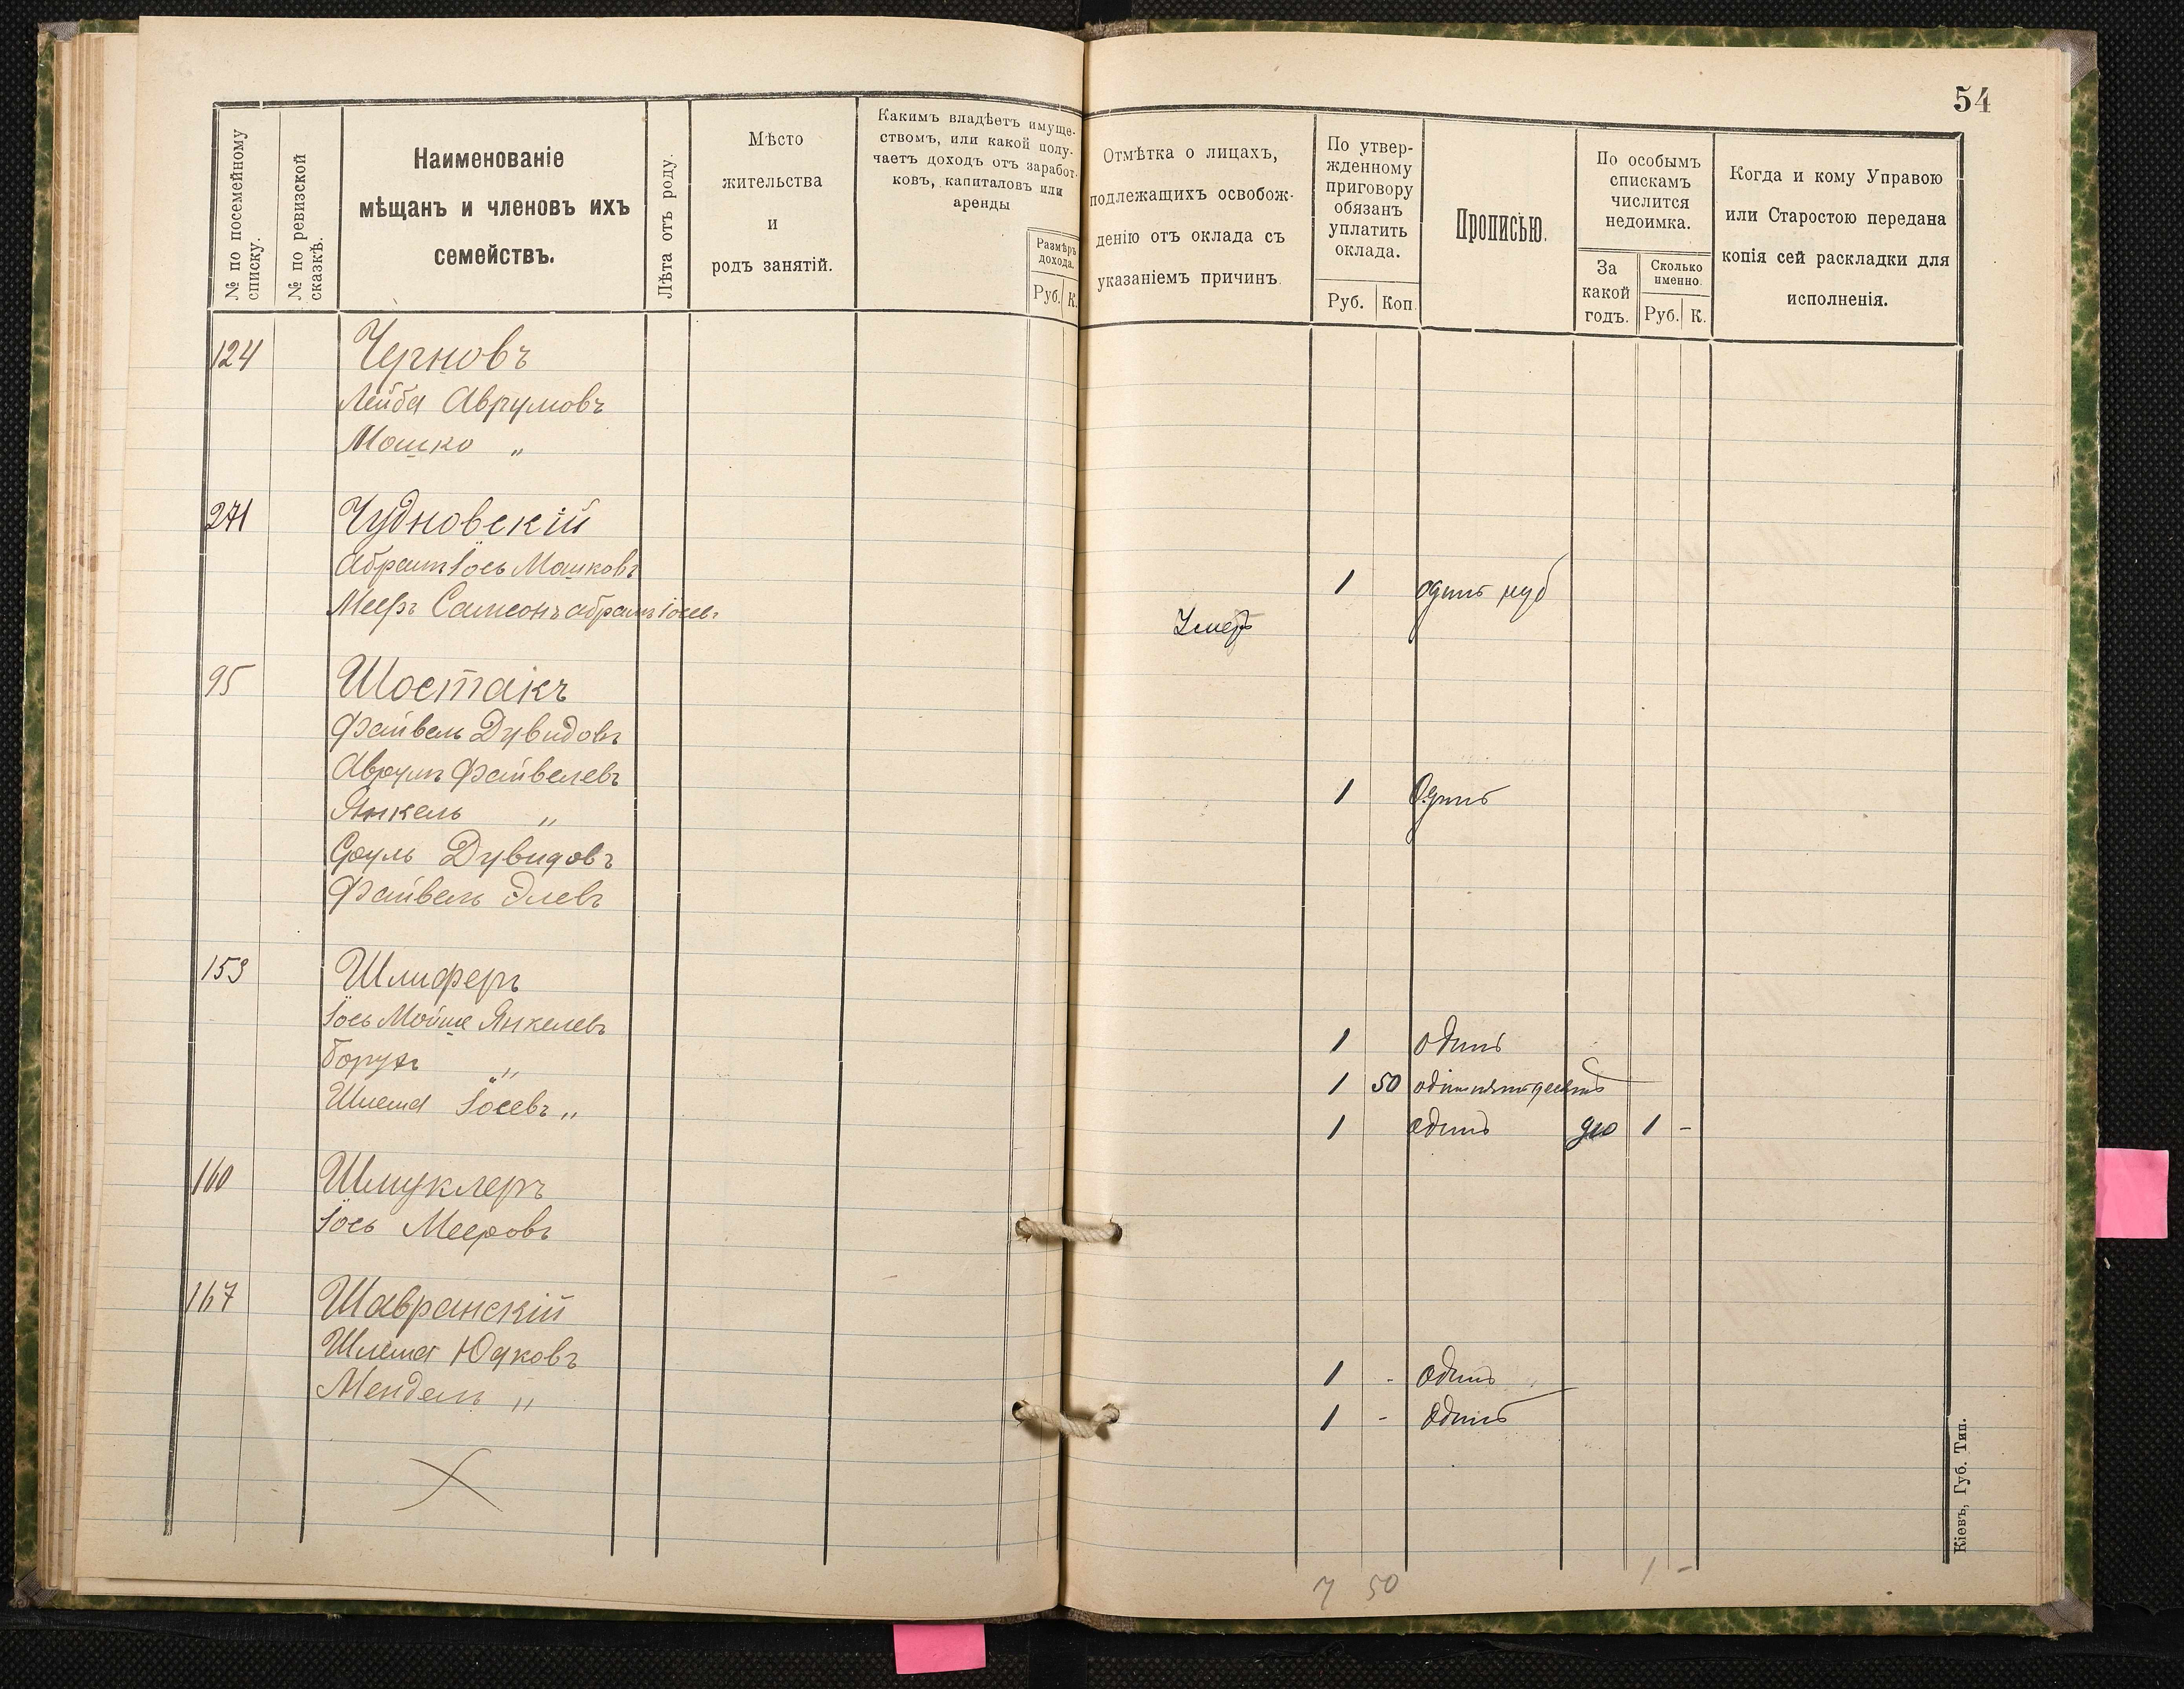 54
№ по посемейному
списку.
№ по ревизской
сказкѣ.
Наименованіе
мѣщанъ и членовъ ихъ
семействъ.
Лѣта отъ роду.
Мѣсто
жительства
и
родъ занятій.
Какимъ владѣетъ имуще-
ствомъ, или какой полу-
чаетъ доходъ отъ заработ-
ковъ, капиталовъ или
аренды
Размѣръ
дохода.
Руб. К.
Отмѣтка о лицахъ,
подлежащихъ освобож-
денію отъ оклада съ
указаніемъ причинъ.
По утвер-
жденному
приговору
обязанъ
уплатить
оклада.
Руб. Коп.
Прописью.
По особымъ
спискамъ
числится
недоимка.
За
какой
годъ.
Сколько
именно.
Руб. К.
Когда и кому Управою
или Старостою передана
копія сей раскладки для
исполненія.
124 Черновъ
Лейба Аврумовъ
Мошко „
271 Чудновскій
Абрамъ Іось Мошковъ 1 одинъ руб
Мееръ Самсонъ Абрамъ Іосевъ Умеръ
95 Шостакъ
Файвель Дувидовъ
Аврумъ Файвелевъ 1 Одинъ
Янкель „
Сруль Дувидовъ
Файвель Элевъ
153 Шлиферъ
Іось Мойше Янкелевъ 1 одинъ
Борухъ „ 1 50 одинъ пятьдесятъ
Шлема Іосевъ „ 1 одинъ 1 -
160 Шмуклеръ
Іось Мееровъ
167 Шавранскій
Шлема Юдковъ 1 - один
Мендель „ 1 - Один
7 50 1 -
Кіевъ, Губ. Тип.